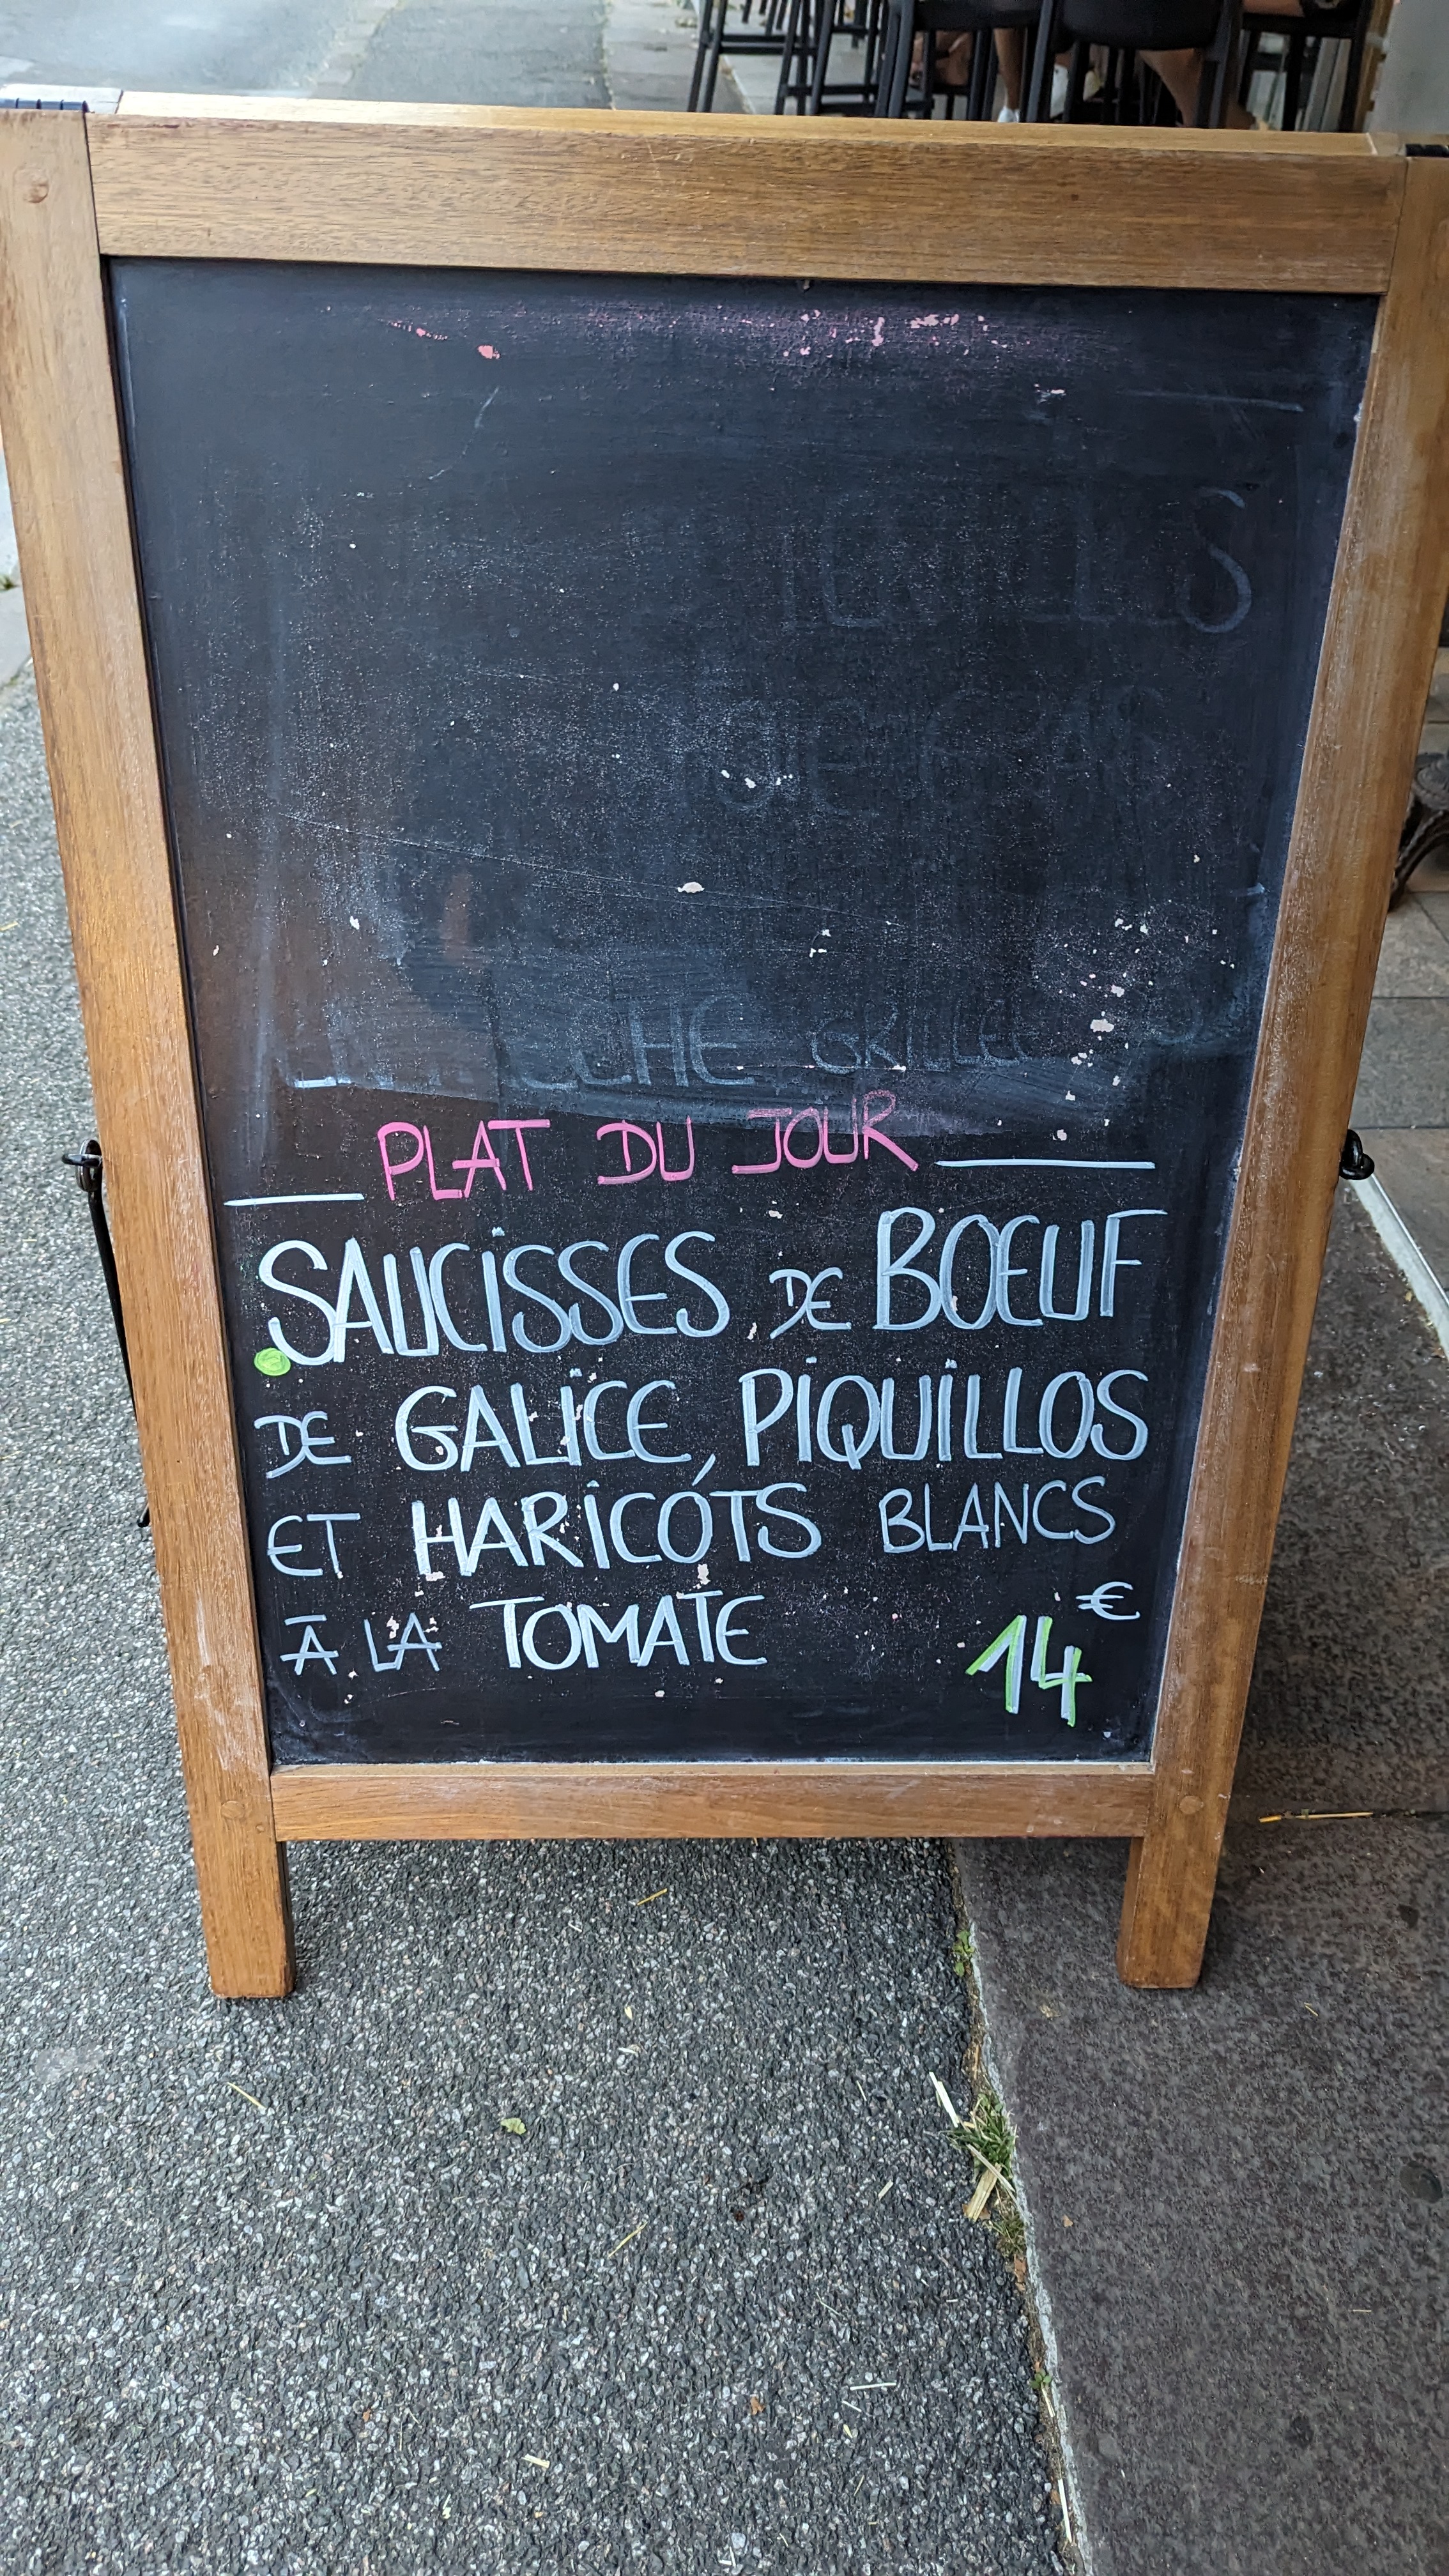 PLAT DU JOUR
SAUCISSES DE BŒUF
DE GALICE, PIQUILLOS
ET HARICOTS BLANCS
À LA TOMATE 14€